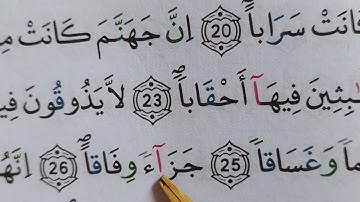 كَانَتْ سَرَاباً ۝20 إِنَّ جَهَنَّمَ كَانَتْ
فِيهَآ أَحْقَاباً ۝23 لَّا يَذُوقُونَ
وَغَسَاقاً ۝25 جَزَآءً وِفَاقاً ۝26 إِنَّهُ